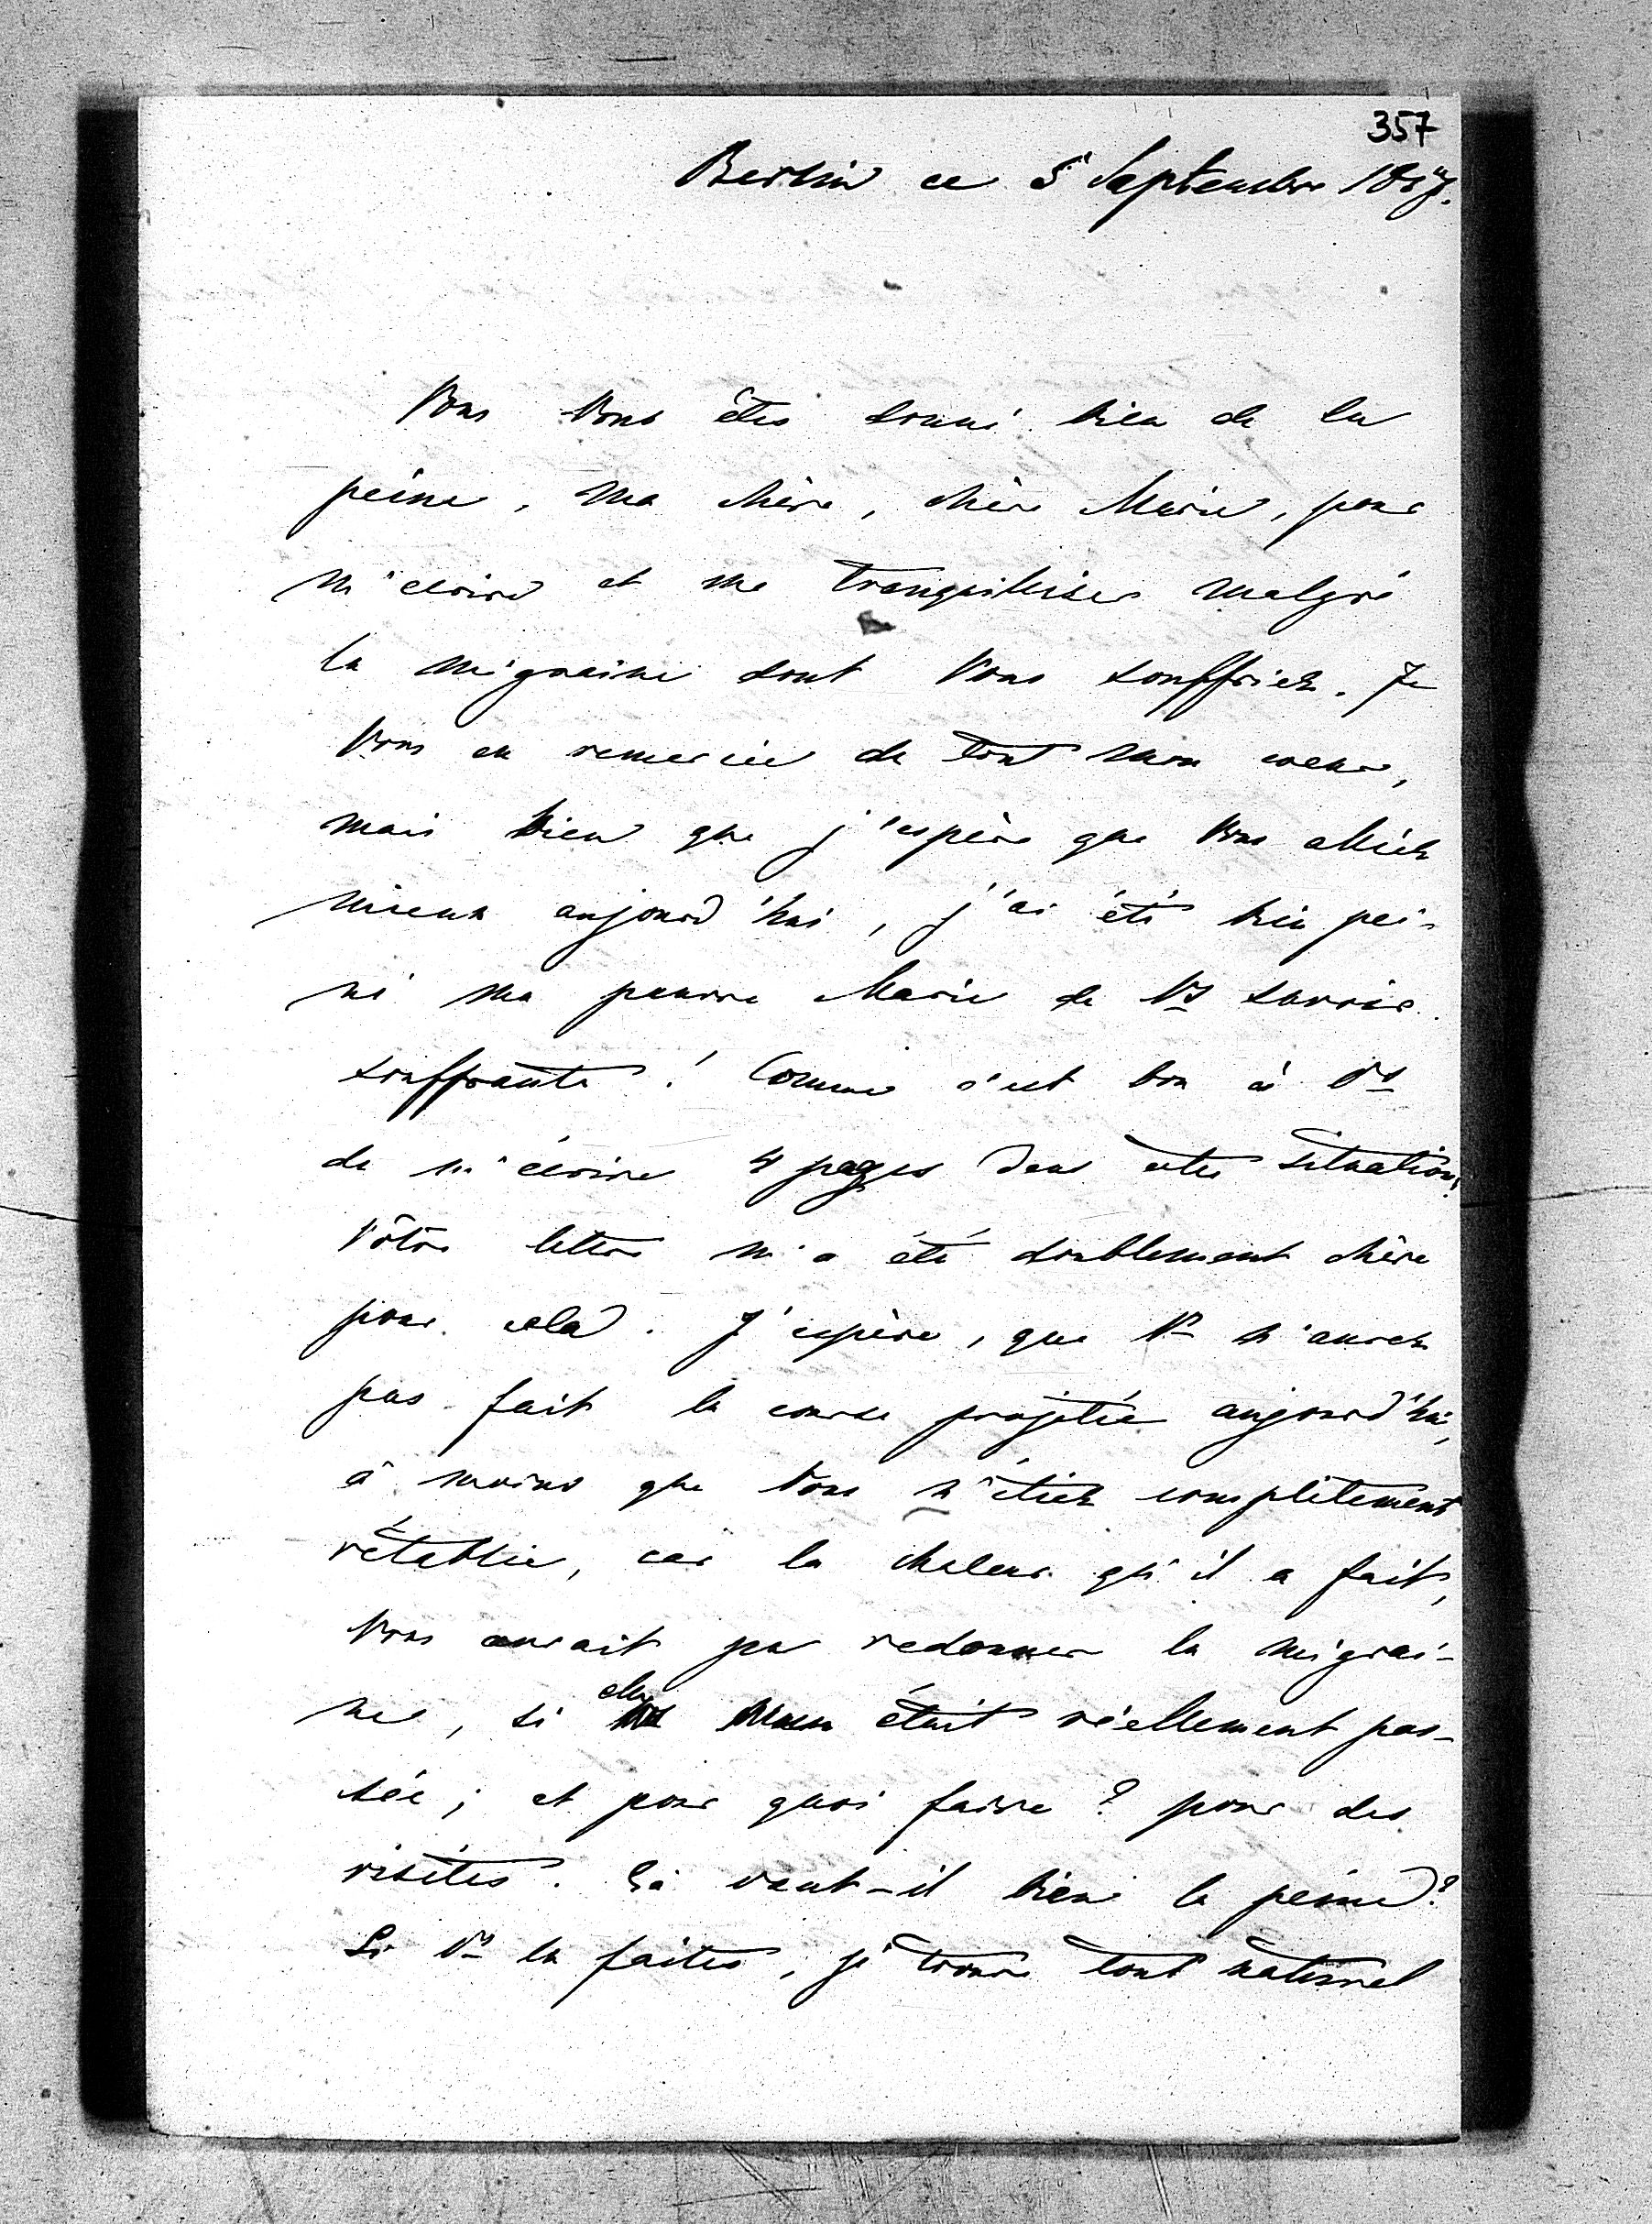 357
Berlin ce 5 Septembre 1887.
Vous Vous êtes donné bien de la
peine, ma chère, chère Marie, pour
m'écrire et me tranquilliser malgré
la migraine dont Vous souffriez. Je
Vous en remercie de tout mon coeur,
mais bien que j'espère que Vous alliez
mieux aujourd'hui, j'ai été bien pei-
né ma pauvre Marie de Vs savoir
souffrante! Comme c'est bon à Vs
de m'écrire 4 pages dans cette situation!
Vôtre lettre m'a été doublement chère
pour cela. J'espère, que Vs n'aurez
pas fait la course projetée aujourd'hui,
à moins que Vous n'étiez complètement
rétablie, car la chaleur qu'il a fait,
Vous aurait pu redonner la migrai-
ne, si elle était réellement pas-
sée; et pour quoi faire? pour des
visites. Ça vaut-il bien la peine?
Si Vs la faites, je trouve tout naturel